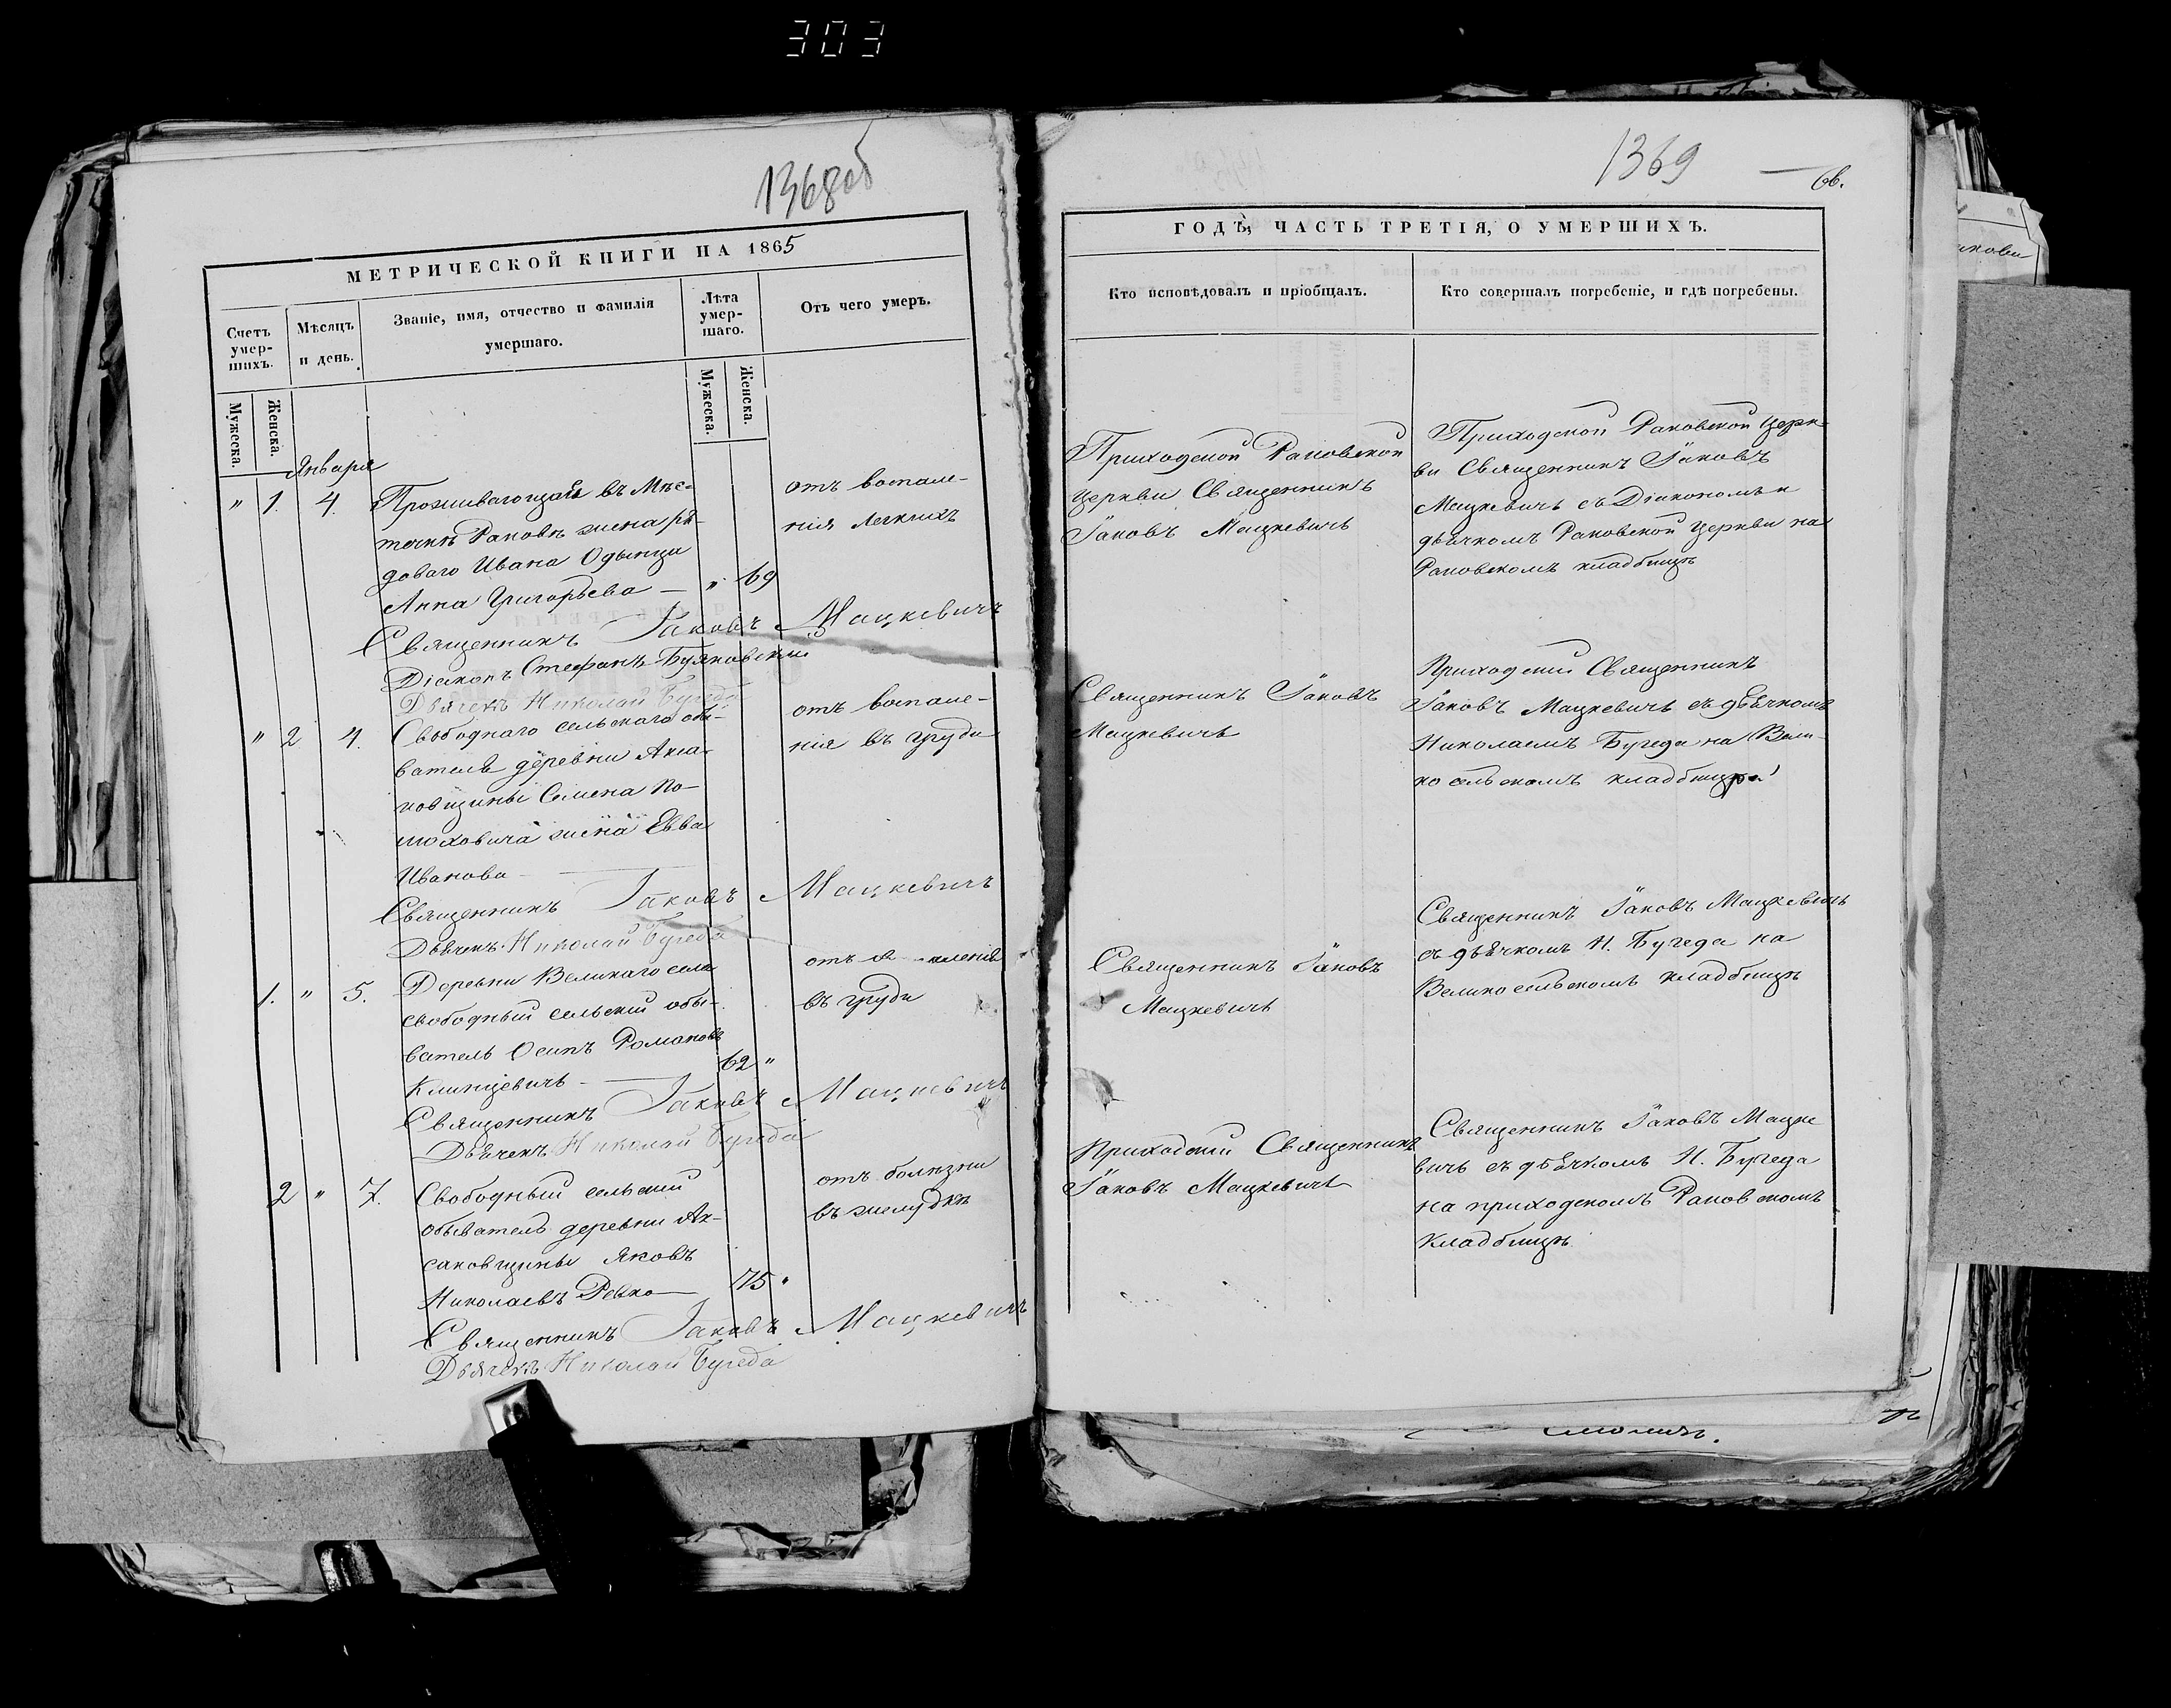 303
1368 об
МЕТРИЧЕСКОЙ КНИГИ НА 1865
Счетъ умер-шихъ.
Мѣсяцъ и день.
Званіе, имя, отчество и фамилія умершаго.
Лѣта умер-шаго.
Отъ чего умеръ.
Мужеска.
Женска.
Мужеска.
Женска.
Января
" 1. 4. Проживающая въ Мѣс-
течкѣ Раковѣ жена ря-
доваго Ивана Одынца
Анна Григорьева — " 69
отъ воспале-
нія легкихъ
Священникъ Іаковъ Мацкевичъ
Діаконъ Стефанъ
Дьячекъ Николай Бугеда
" 2 4. Свободнаго сельскаго обы-
вателя деревни Акса-
ковщины Семена
жена Евва
Иванова
отъ воспале-
нія въ груди
Священникъ Іаковъ Мацкевичъ
Дьячекъ Николай Бугеда
1. " 5. Деревни Великаго села
свободный сельскій обы-
ватель Осипъ Романовъ
Климцевичъ — 62 "
отъ
въ груди
Священникъ Іаковъ Мацкевичъ
Дьячекъ Николай Бугеда
2 " 7. Свободный сельскій
обыватель деревни Ак-
саковщины Яковъ
Николаевъ Ревко — 75 "
отъ болѣзни
въ желудкѣ
Священникъ Іаковъ Мацкевичъ
Дьячекъ Николай Бугеда
1369
66.
ГОДЪ, ЧАСТЬ ТРЕТІЯ, О УМЕРШИХЪ.
Кто исповѣдовалъ и пріобщалъ.
Кто совершалъ погребеніе, и гдѣ погребены.
Приходской Раковской
церкви Священникъ
Іаковъ Мацкевичъ
Приходской Раковской церк-
ви Священникъ Іаковъ
Мацкевичъ съ Діакономъ и
дьячкомъ Раковской церкви на
Раковскомъ кладбищѣ
Священникъ Іаковъ
Мацкевичъ
Приходскій Священникъ
Іаковъ Мацкевичъ съ дьячкомъ
Николаемъ Бугеда на Вели-
косельскомъ кладбищѣ
Священникъ Іаковъ
Мацкевичъ
Священникъ Іаковъ Мацкевичъ
съ дьячкомъ Н. Бугеда на
Великосельскомъ кладбищѣ
Приходскій Священникъ
Іаковъ Мацкевичъ
Священникъ Іаковъ Мацке
вичъ съ дьячкомъ Н. Бугеда
на приходскомъ Раковскомъ
кладбищѣ